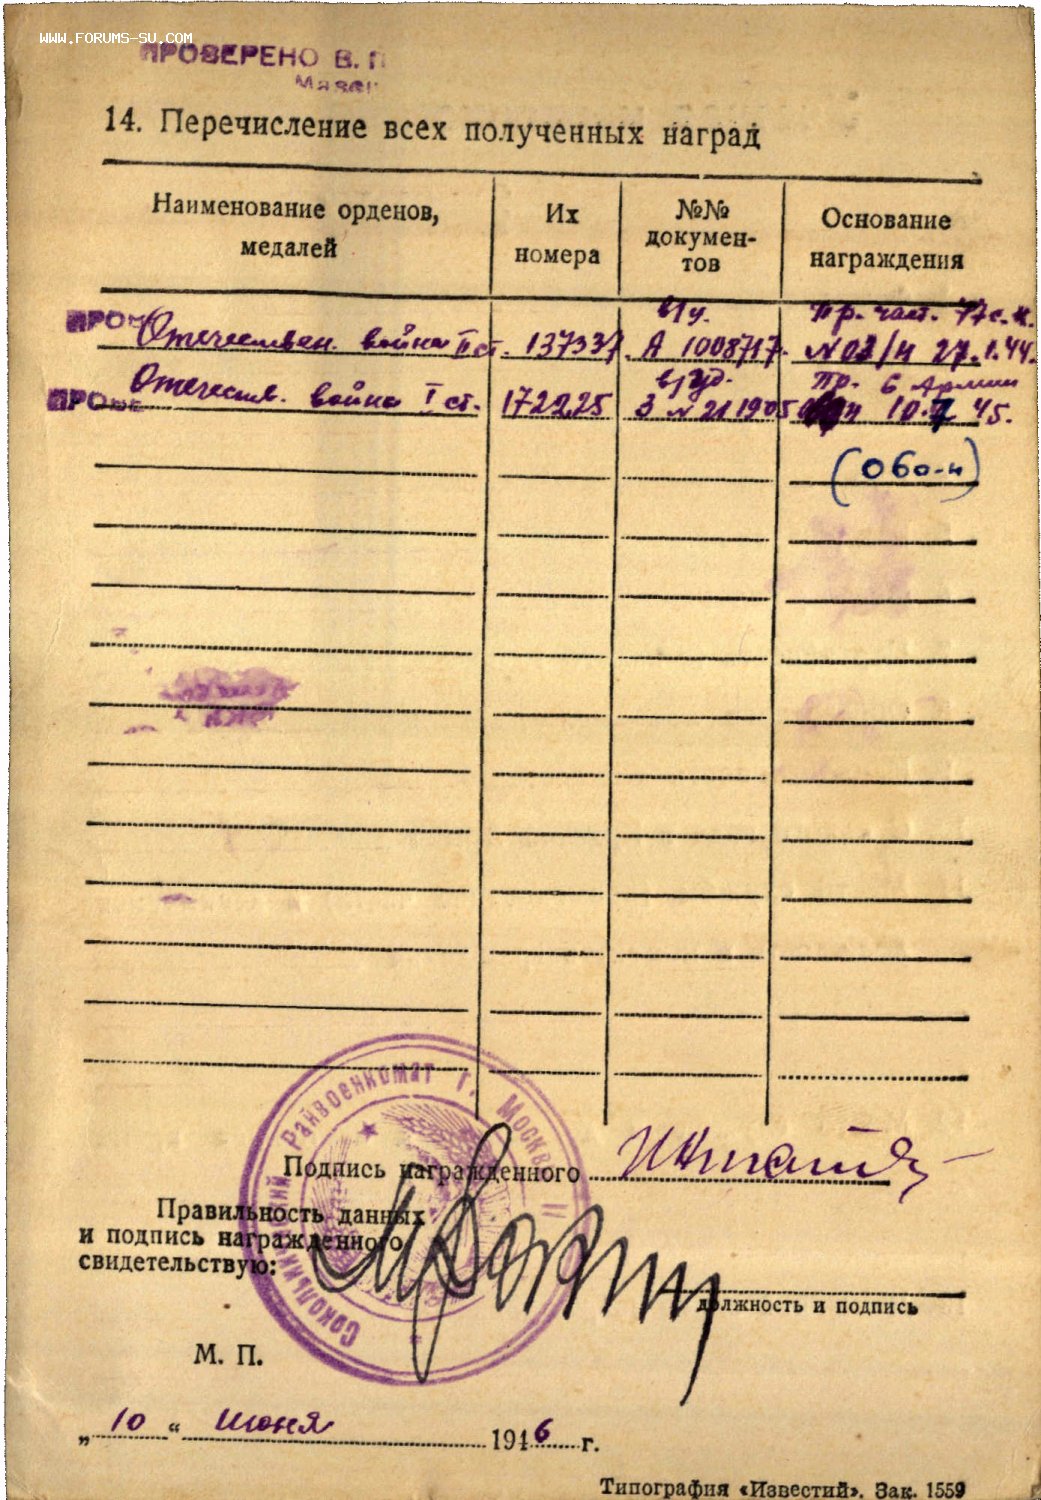 WWW.FORUMS-SU.COM
ПРОВЕРЕНО В. П
14. Перечисление всех полученных наград
Наименование орденов, медалей
Их номера
№№ докумен-тов
Основание награждения
в/у. Пр. част. 77 с. к.
ПРО Отечествен. война II ст. 137337 А 1008717. N 03/н 27.1.44.
Пр. 6 Армии
ПРОВЕ Отечеств. война I ст. 172225 З N 211905 10. 45.
(060-н)
Подпись награжденного
Правильность данных
и подпись награжденного
свидетельствую:
должность и подпись
Сокольнический Райвоенкомат г. Москвы
М. П.
„10“ июня 1946 г.
Типография «Известий». Зак. 1559